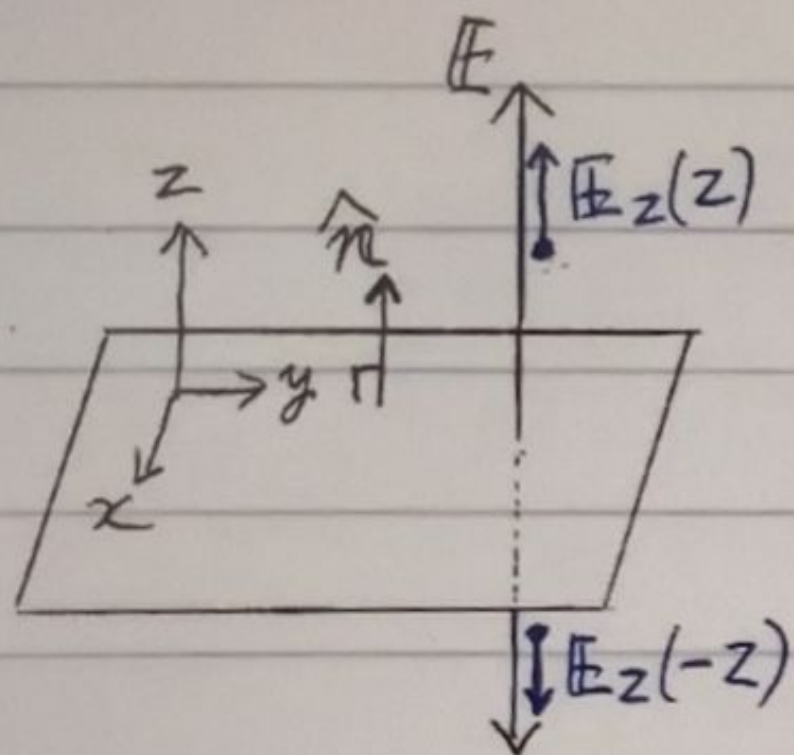 𝔼
z
𝔼z(z)
n̂
y
x
𝔼z(-z)